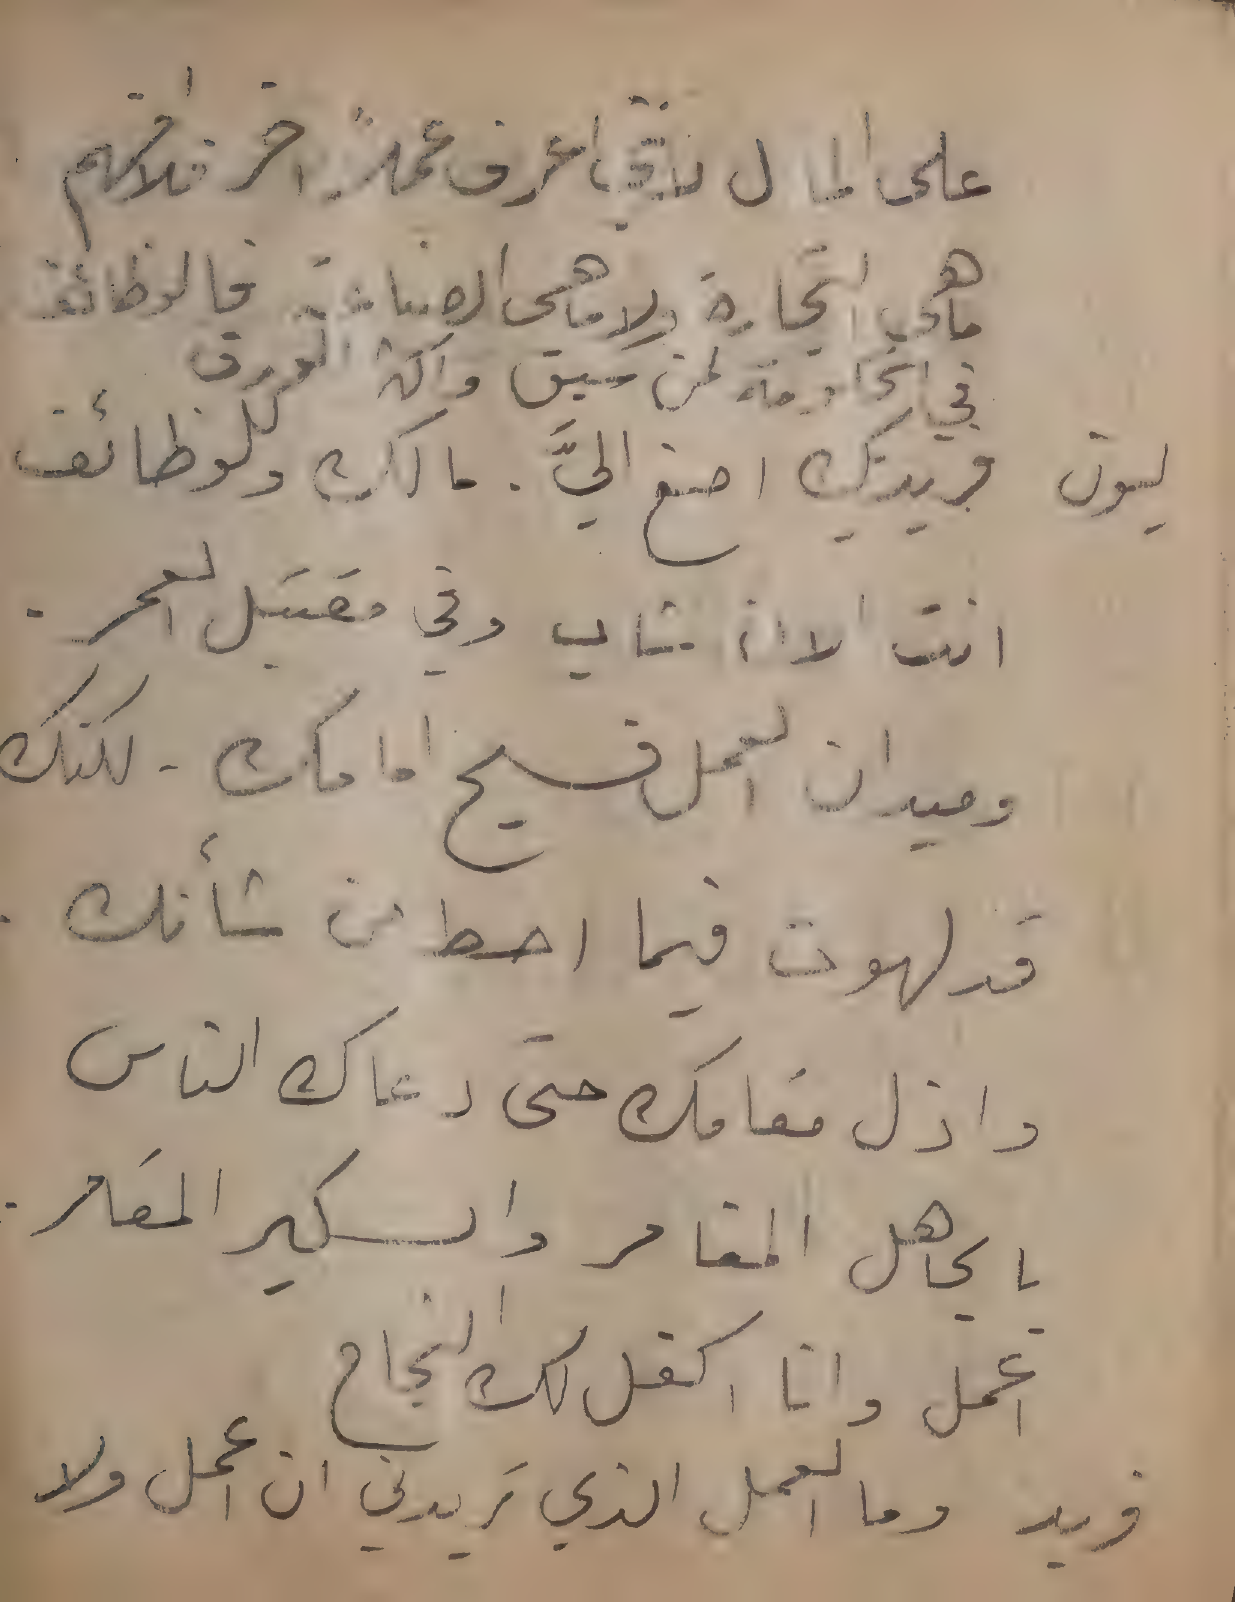 على المال فانني اعرف عملاً اخر فلا افهم
ما هي التجارة ولا ما هي الصناعة فالوظائف
في الحكومة لمن سبق واكثر الورق
ليون فريدبك اصغ اليَّ . مالك وللوظائف
انت الان شاب وفي مقتبل العمر .
وميدان العمل فسيح امامك - لكنك
قد لهوت فيما احط من شأنك .
واذل مقامك حتى دعاك الناس
بالجاهل المقامر والسكير المقامر .
اعمل وانا اكفل لك النجاح
فريد وما العمل الذي تريدني ان اعمل ولا